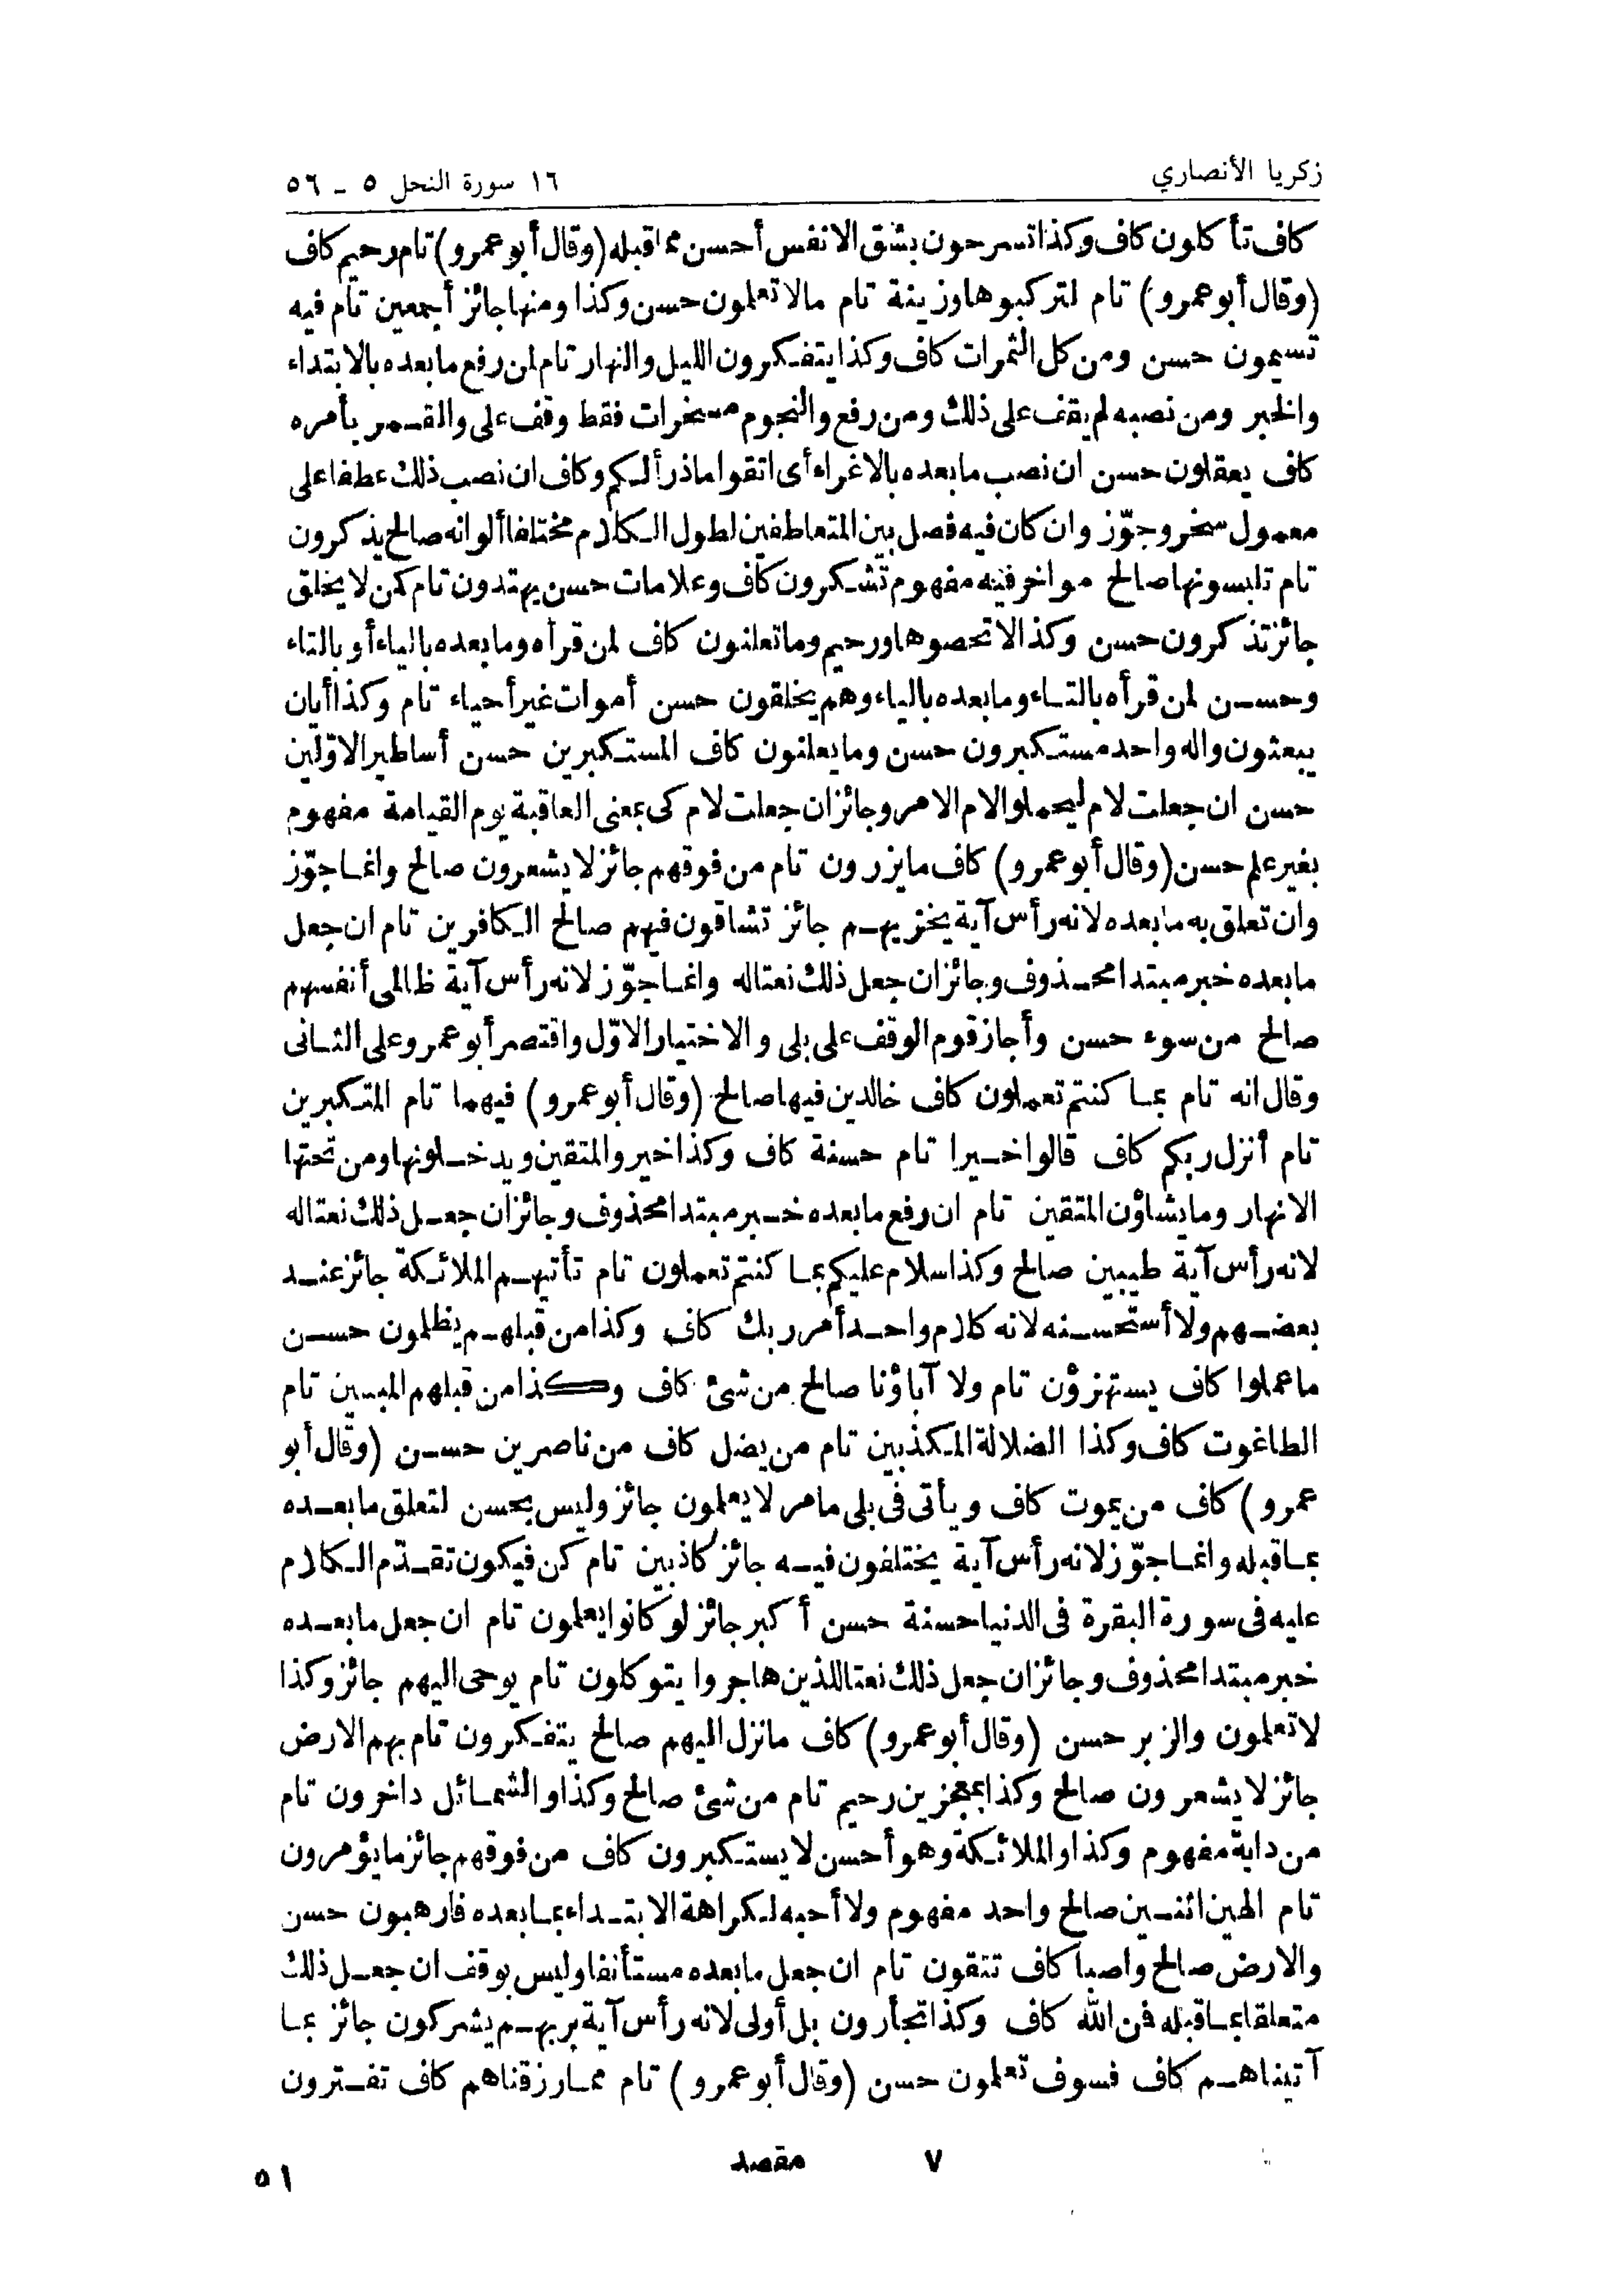 زكريا الأنصاري
١٦ سورة النحل ٥ ـ ٥٦
كاف تأكلون كاف وكذا تسرحون بشق الانفس أحسن مما قبله (وقال أبو عمرو) تام رحيم كاف
(وقال أبو عمرو) تام لتركبوها وزينة تام مالا تعلمون حسن وكذا ومنها جائز أجمعين تام فيه
تسيمون حسن ومن كل الثمرات كاف وكذا يتفكرون الليل والنهار تام لمن رفع ما بعده بالابتداء
والخبر ومن نصبه لم يقف على ذلك ومن رفع والنجوم مسخرات فقط وقف على والقمر بأمره
كاف يعقلون حسن ان نصب ما بعده بالاغراء أى اتقوا ما ذرأ لكم وكاف ان نصب ذلك عطفا على
معمول سخر وجوّز وان كان فيه فصل بين المتعاطفين لطول الكلام مختلفا ألوانه صالح يذكرون
تام تلبسونها صالح مواخر فيه مفهوم تشكرون كاف وعلامات حسن يهتدون تام كمن لا يخلق
جائز تذكرون حسن وكذا لا تحصوها ورحيم وما تعلنون كاف لمن قرأه وما بعده بالياء أو بالتاء
وحسن لمن قرأه بالتاء وما بعده بالياء وهم يخلقون حسن أموات غير أحياء تام وكذا أيان
يبعثون واله واحد مستكبرون حسن وما يعلنون كاف المستكبرين حسن أساطير الاوّلين
حسن ان جعلت لام ليحملوا لام الامر وجائز ان جعلت لام كى بمعنى العاقبة يوم القيامة مفهوم
بغير علم حسن (وقال أبو عمرو) كاف ما يزرون تام من فوقهم جائز لا يشعرون صالح وانما جوّز
وان تعلق به ما بعده لانه رأس آية يخزيهم جائز تشاقون فيهم صالح الكافرين تام ان جعل
ما بعده خبر مبتدا محذوف وجائز ان جعل ذلك نعتا له وانما جوّز لانه رأس آية ظالمى أنفسهم
صالح من سوء حسن وأجاز قوم الوقف على بلى والاختيار الاوّل واقتصر أبو عمرو على الثانى
وقال انه تام بما كنتم تعملون كاف خالدين فيها صالح (وقال أبو عمرو) فيهما تام المتكبرين
تام أنزل ربكم كاف قالوا خيرا تام حسنة كاف وكذا خير والمتقين ويدخلونها ومن تحتها
الانهار وما يشاؤن المتقين تام ان رفع ما بعده خبر مبتدا محذوف وجائز ان جعل ذلك نعتا له
لانه رأس آية طيبين صالح وكذا سلام عليكم بما كنتم تعملون تام تأتيهم الملائكة جائز عند
بعضهم ولا أستحسنه لانه كلام واحد أمر ربك كاف وكذا من قبلهم يظلمون حسن
ما عملوا كاف يستهزؤن تام ولا آباؤنا صالح من شئ كاف وكذا من قبلهم المبين تام
الطاغوت كاف وكذا الضلالة المكذبين تام من يضل كاف من ناصرين حسن (وقال أبو
عمرو) كاف من يموت كاف ويأتى فى بلى ما مر لا يعلمون جائز وليس بحسن لتعلق ما بعده
بما قبله وانما جوّز لانه رأس آية يختلفون فيه جائز كاذبين تام كن فيكون تقدّم الكلام
عليه فى سورة البقرة فى الدنيا حسنة حسن أكبر جائز لو كانوا يعلمون تام ان جعل ما بعده
خبر مبتدا محذوف وجائز ان جعل ذلك نعتا للذين هاجروا يتوكلون تام يوحى اليهم جائز وكذا
لا تعلمون والزبر حسن (وقال أبو عمرو) كاف ما نزل اليهم صالح يتفكرون تام بهم الارض
جائز لا يشعرون صالح وكذا بمعجزين رحيم تام من شئ صالح وكذا والشمائل داخرون تام
من دابة مفهوم وكذا والملائكة وهو أحسن لا يستكبرون كاف من فوقهم جائز ما يؤمرون
تام الهين اثنين صالح واحد مفهوم ولا أحبه لكراهة الابتداء بما بعده فارهبون حسن
والارض صالح واصبا كاف تتقون تام ان جعل ما بعده مستأنفا وليس بوقف ان جعل ذلك
متعلقا بما قبله فمن الله كاف وكذا تجأرون بل أولى لانه رأس آية بربهم يشركون جائز بما
آتيناهم كاف فسوف تعلمون حسن (وقال أبو عمرو) تام مما رزقناهم كاف تفترون
٧ مقصد
٥١